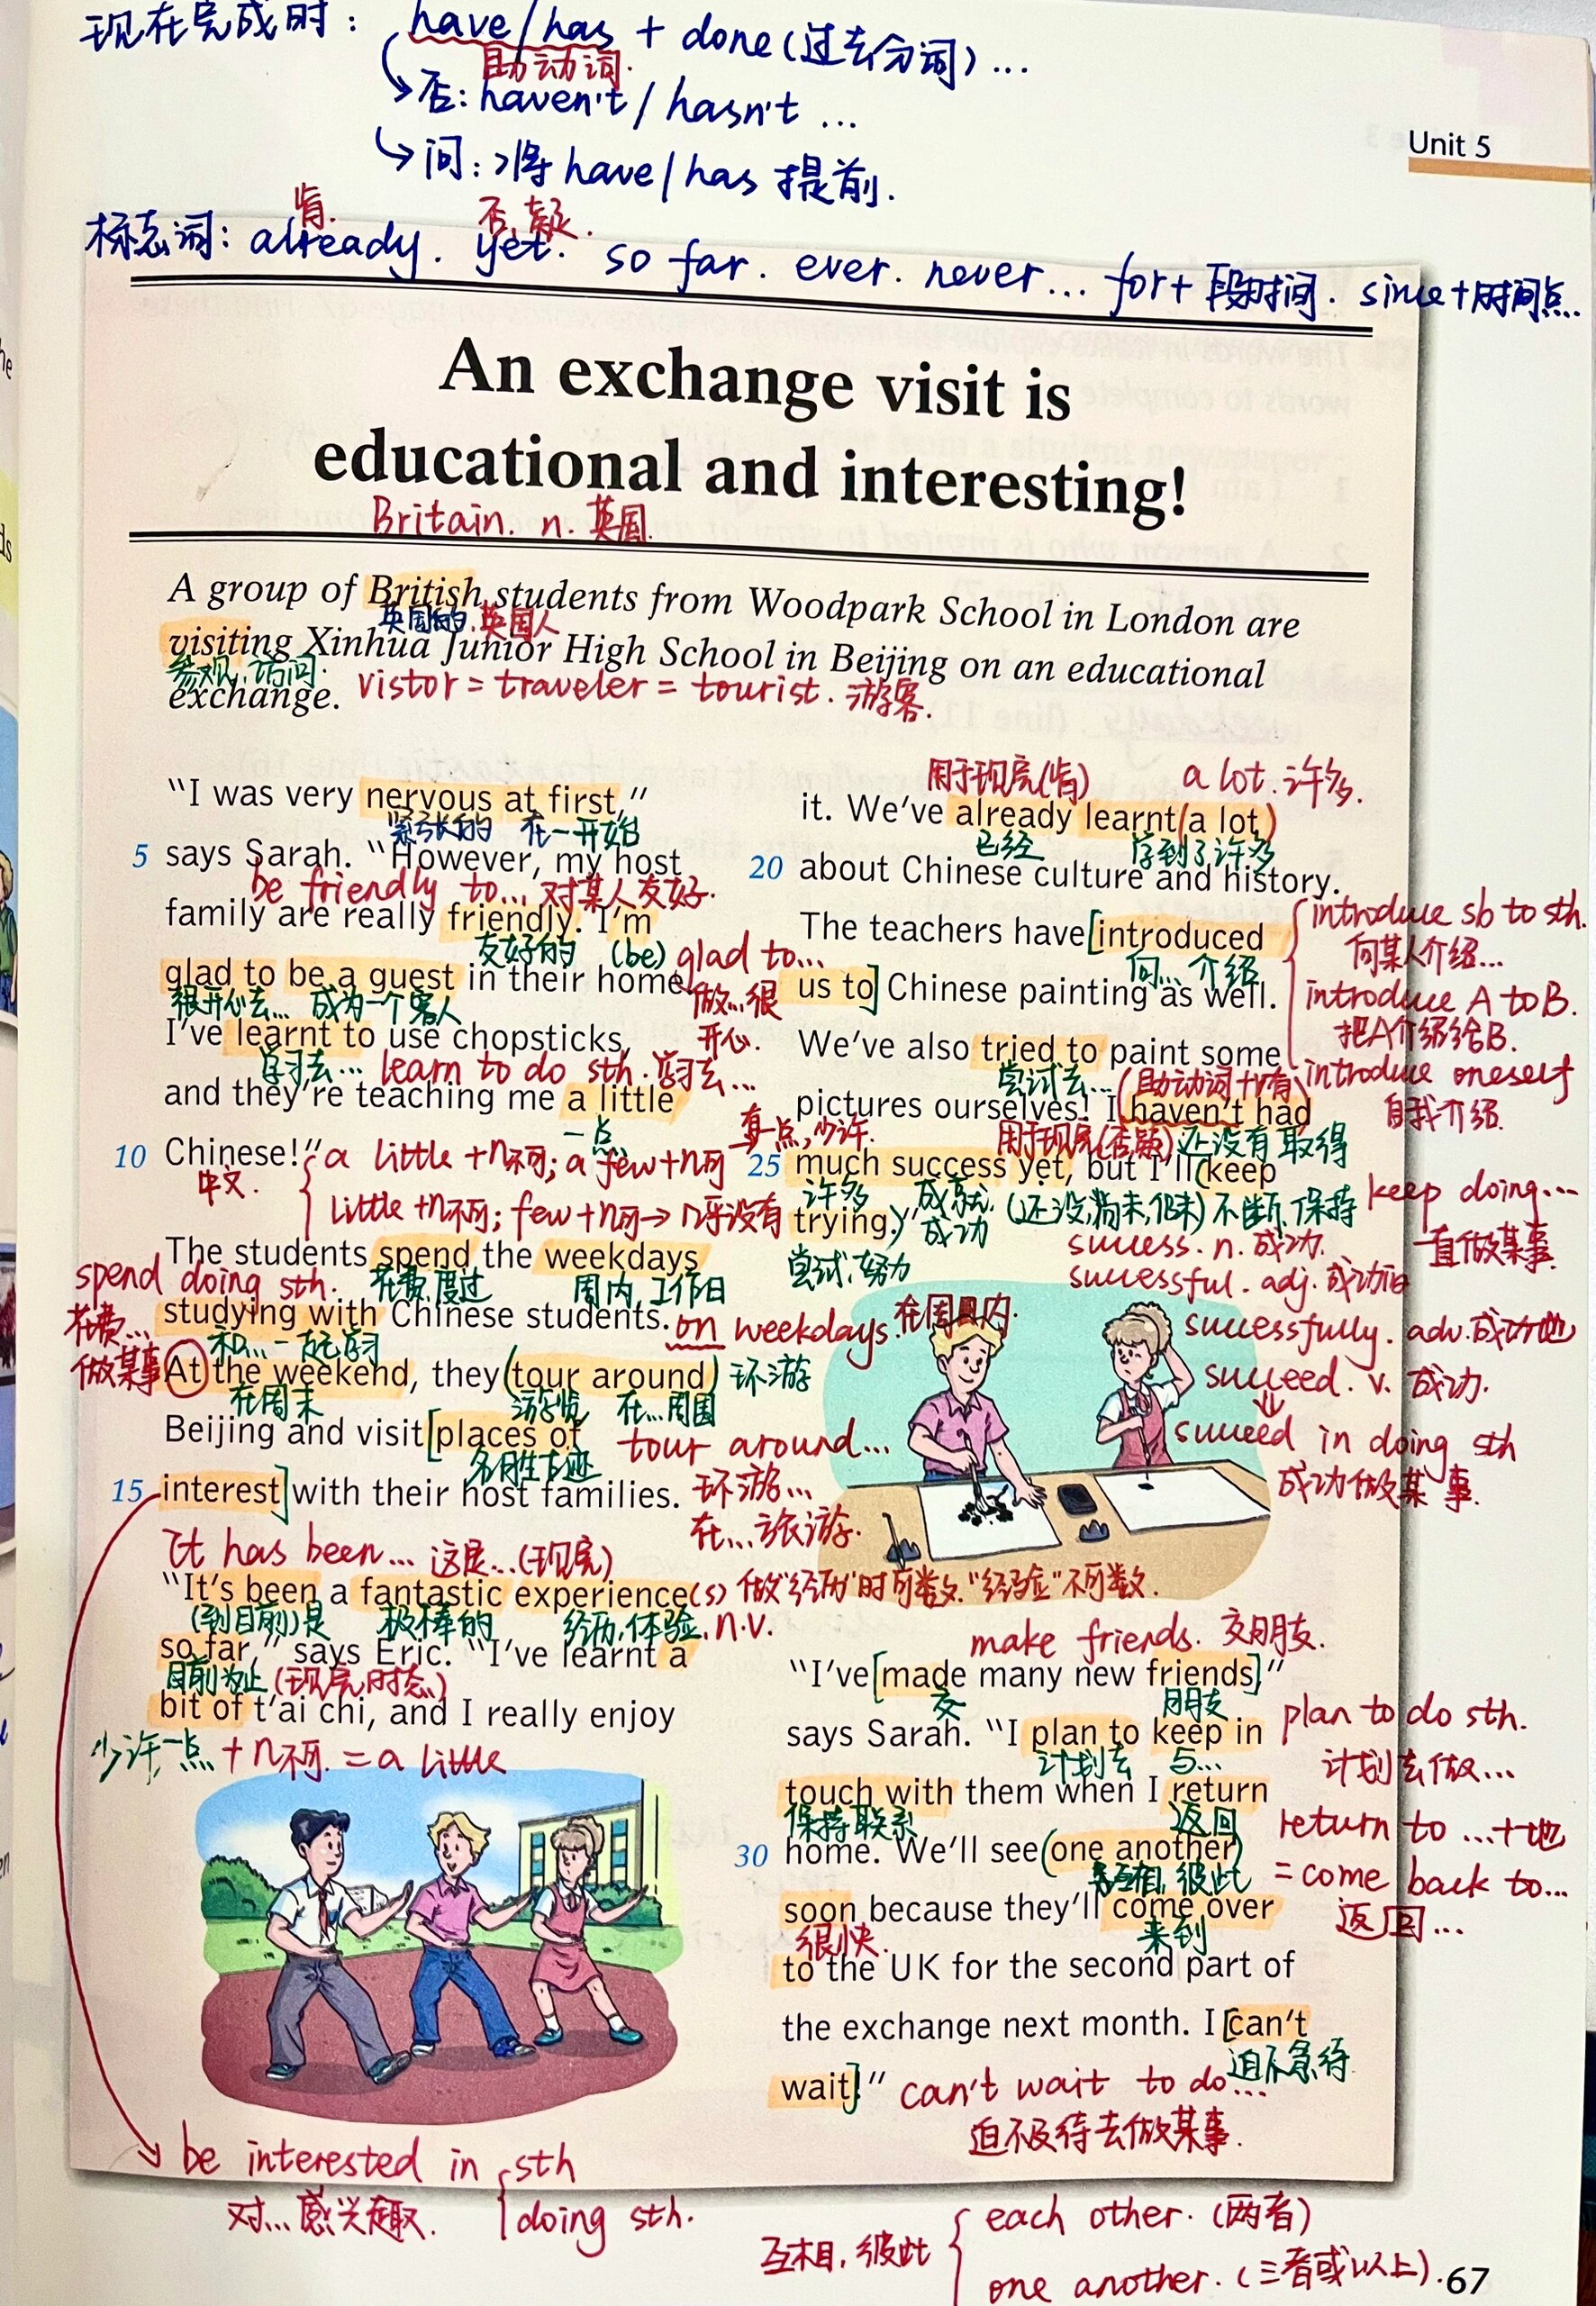 现在完成时: have/has + done(过去分词)...
助动词.
否: haven't / hasn't ...
问: 将 have/has 提前.
Unit 5
肯.
否,疑.
标志词: already. yet. so far. ever. never... for+段时间. since+时间点.
An exchange visit is
educational and interesting!
Britain. n. 英国.
A group of British students from Woodpark School in London are
英国的. 英国人
visiting Xinhua Junior High School in Beijing on an educational
参观,访问.
exchange. vistor = traveler = tourist. 游客.
"I was very nervous at first,"
紧张的 在一开始
5 says Sarah. "However, my host
be friendly to... 对某人友好.
family are really friendly. I'm
友好的 (be) glad to...
glad to be a guest in their home.
做...很开心.
很开心去... 成为一个客人
I've learnt to use chopsticks,
学习去... learn to do sth. 学习去...
and they're teaching me a little
一点
有一点,少许.
10 Chinese!" a little +n不可; a few+n可
中文. little +n不可; few+n可→几乎没有
The students spend the weekdays
spend doing sth. 花费,度过 周内,工作日
花费...做某事
studying with Chinese students. on weekdays. 在周内.
和...一起学习
At the weekend, they (tour around) 环游
在周末 游览 在...周围
Beijing and visit [places of tour around...
名胜古迹 环游...
15 interest] with their host families.
在...旅游.
It has been... 这是...(现完)
"It's been a fantastic experience(s) 做"经历"时可数."经验"不可数.
(到目前)是 极棒的 经历,体验. n.v.
so far," says Eric. "I've learnt a
目前为止 (现完时态)
bit of t'ai chi, and I really enjoy
少许,一点 + n不可. = a little
be interested in sth
doing sth.
对...感兴趣.
用于现完(肯) a lot. 许多.
it. We've already learnt (a lot)
已经 学到了许多
20 about Chinese culture and history.
The teachers have [introduced
向...介绍
us to] Chinese painting as well.
introduce sb to sth.
向某人介绍...
introduce A to B.
把A介绍给B.
introduce oneself
自我介绍.
We've also tried to paint some
尝试去... (助动词+v有)
pictures ourselves! I haven't had
用于现完(否疑) 还没有取得
25 much success yet, but I'll (keep
许多 成就,成功 (还没,尚未,仍未) 不断,保持
keep doing...
一直做某事
trying.)"
尝试,努力
success. n. 成功.
successful. adj. 成功的
successfully. adv. 成功地
succeed. v. 成功.
succeed in doing sth
成功做某事.
make friends. 交朋友.
"I've [made many new friends]"
交 朋友
says Sarah. "I plan to keep in
计划去 与...
plan to do sth.
计划去做...
touch with them when I return
保持联系 返回
return to ...+地
30 home. We'll see (one another)
互相,彼此
= come back to...
返回...
soon because they'll come over
很快. 来到
to the UK for the second part of
the exchange next month. I [can't
迫不急待.
wait]." can't wait to do...
迫不及待去做某事.
互相,彼此 each other. (两者)
one another. (三者或以上).
67